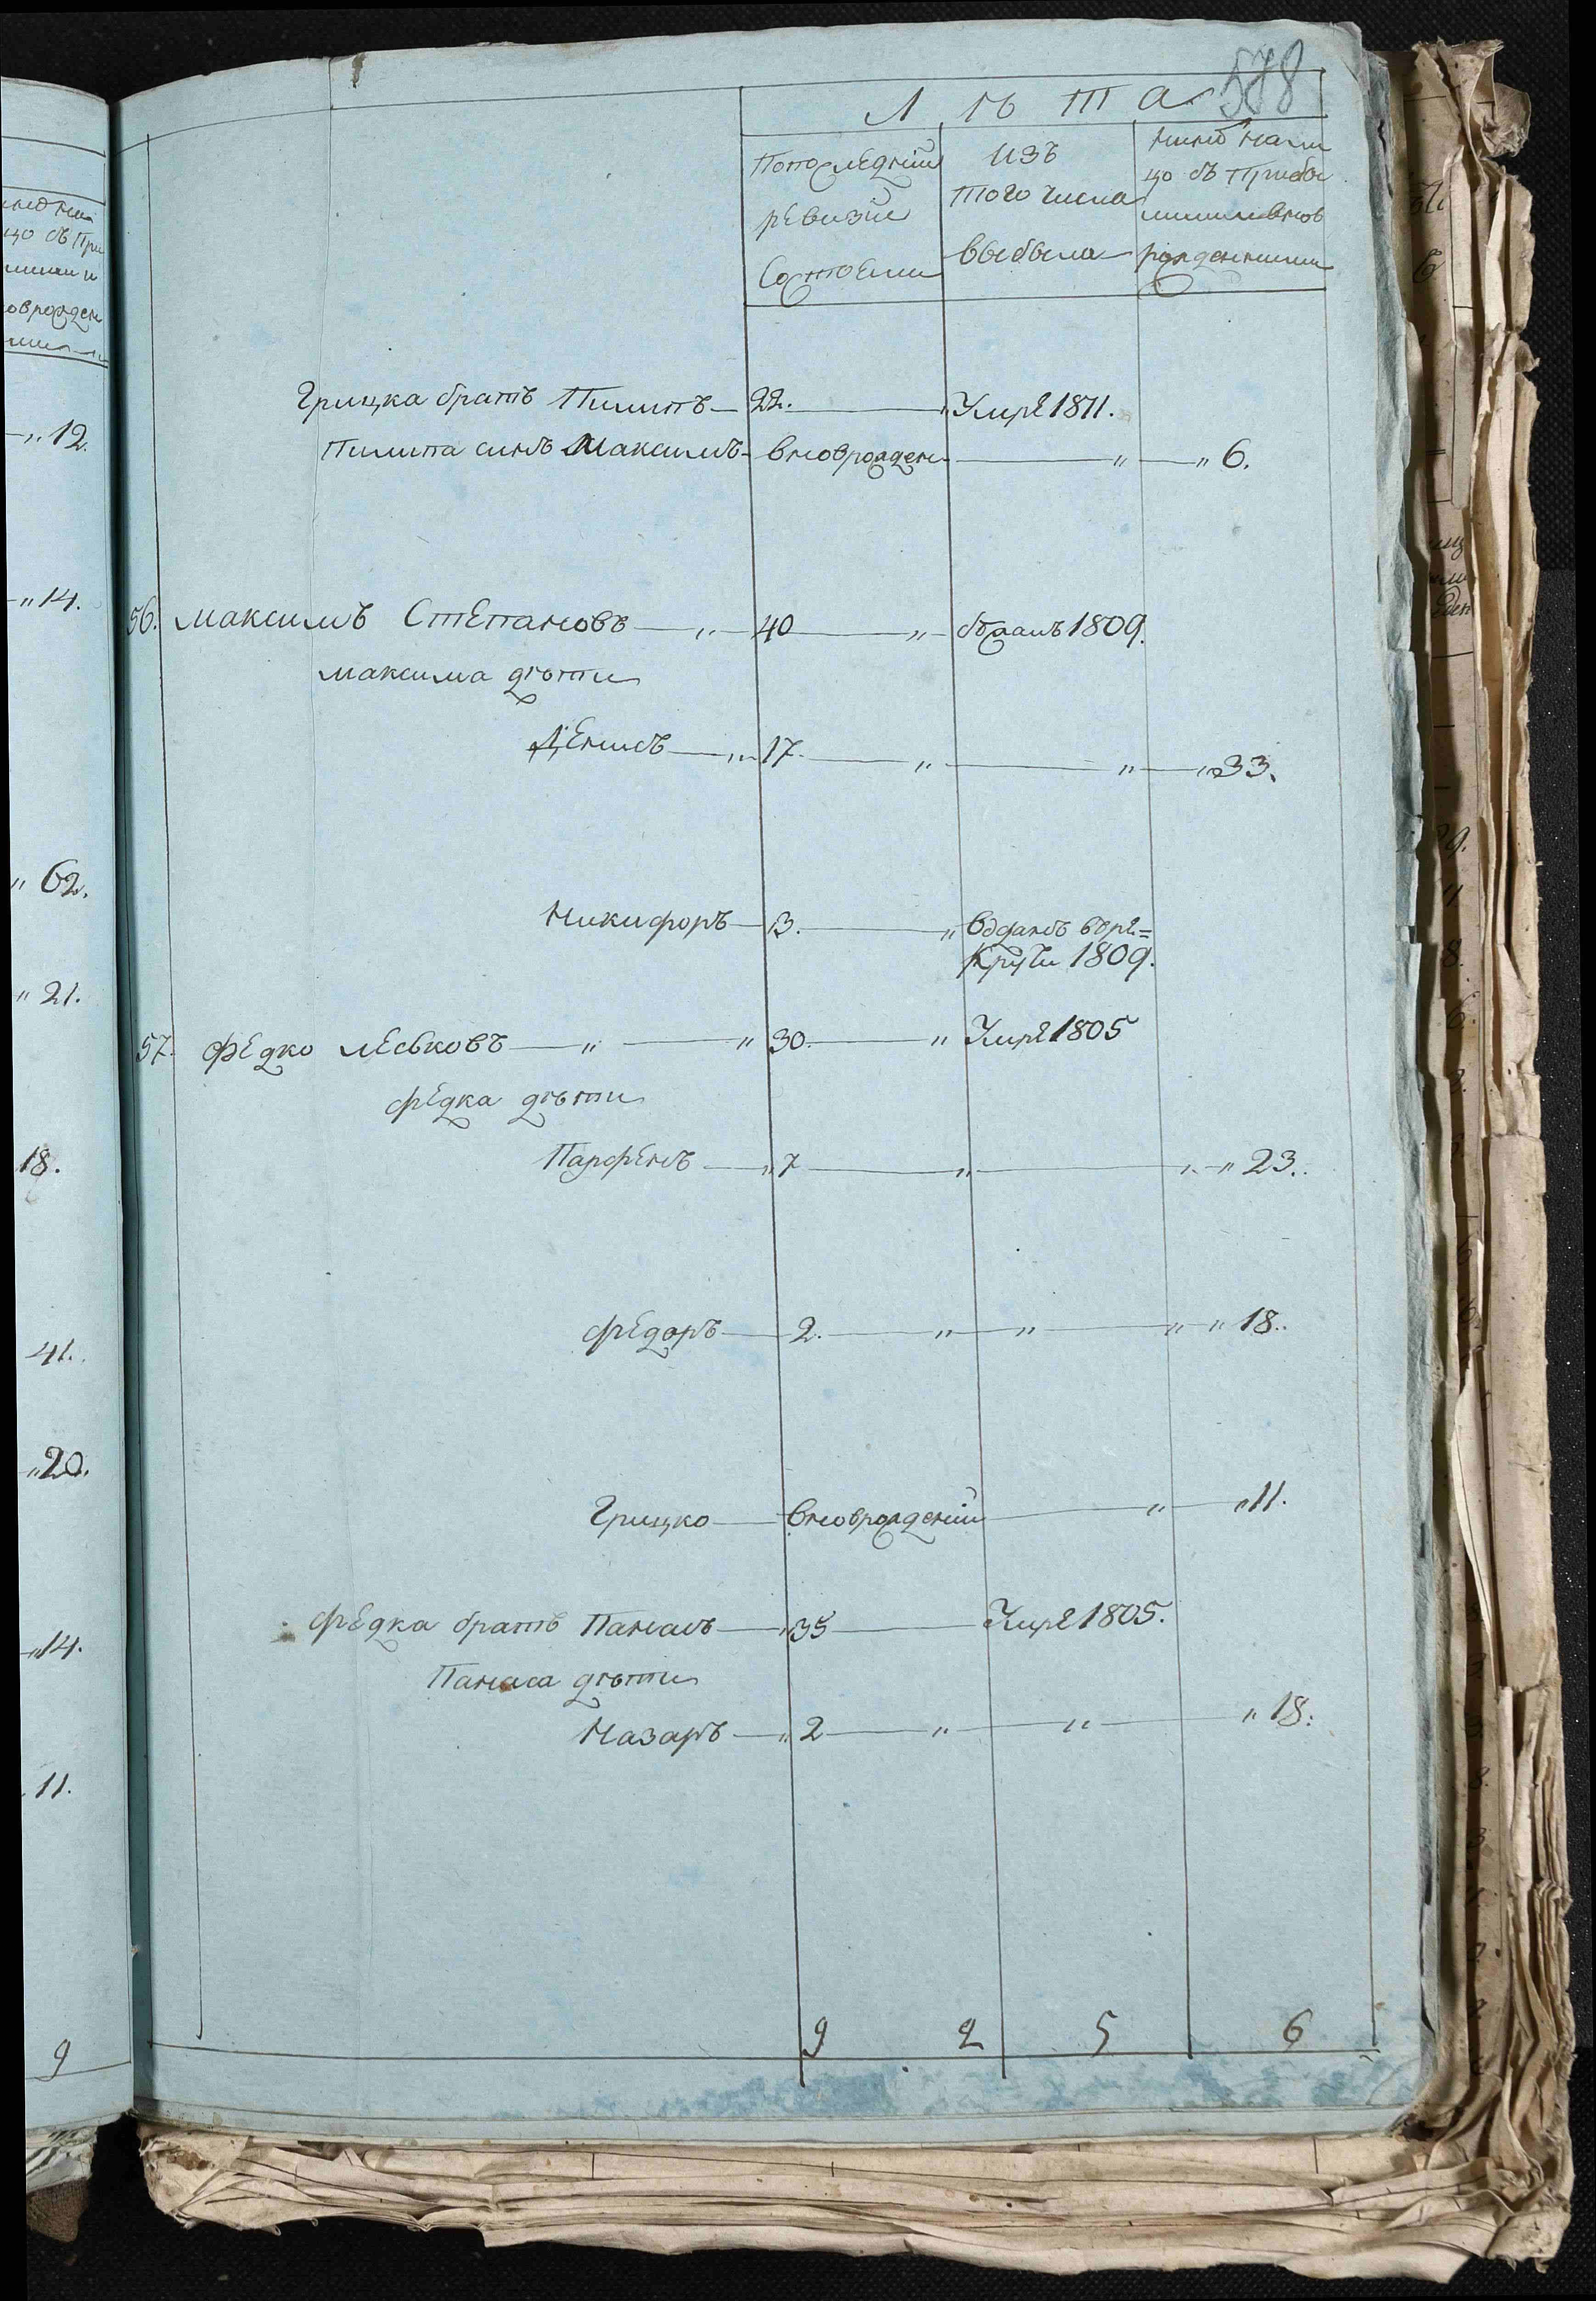 578
Лѣта
Попоследней
ревизіи
Состоели
изъ
того числа
выбыло
ныне нали
цо съ прибы
лими внов
рожденними
Грицка братъ Пилипъ 22. Умре 1811.
Пилипа синъ Максимъ вноврожден " " 6.
56. Максимъ Степановъ " 40 " сосланъ 1809.
Максима дѣти
Денисъ " 17 " " " 33.
Никифоръ 13. " Отданъ въре=
Крути 1809.
57. Федко Леськовъ " " 30. " Умре 1805
Федка дѣти
Парфенъ " 7 " " " 23.
Федоръ 2. " " " " 18.
Грицко вноврожденій " " 11.
Федка братъ Панасъ " 35 Умре 1805.
Панаса дѣти
Назаръ " 2 " " " 18.
9 2 5 6
" 12.
" 14.
" 62.
" 21.
18.
41.
" 20.
" 14.
11.
9